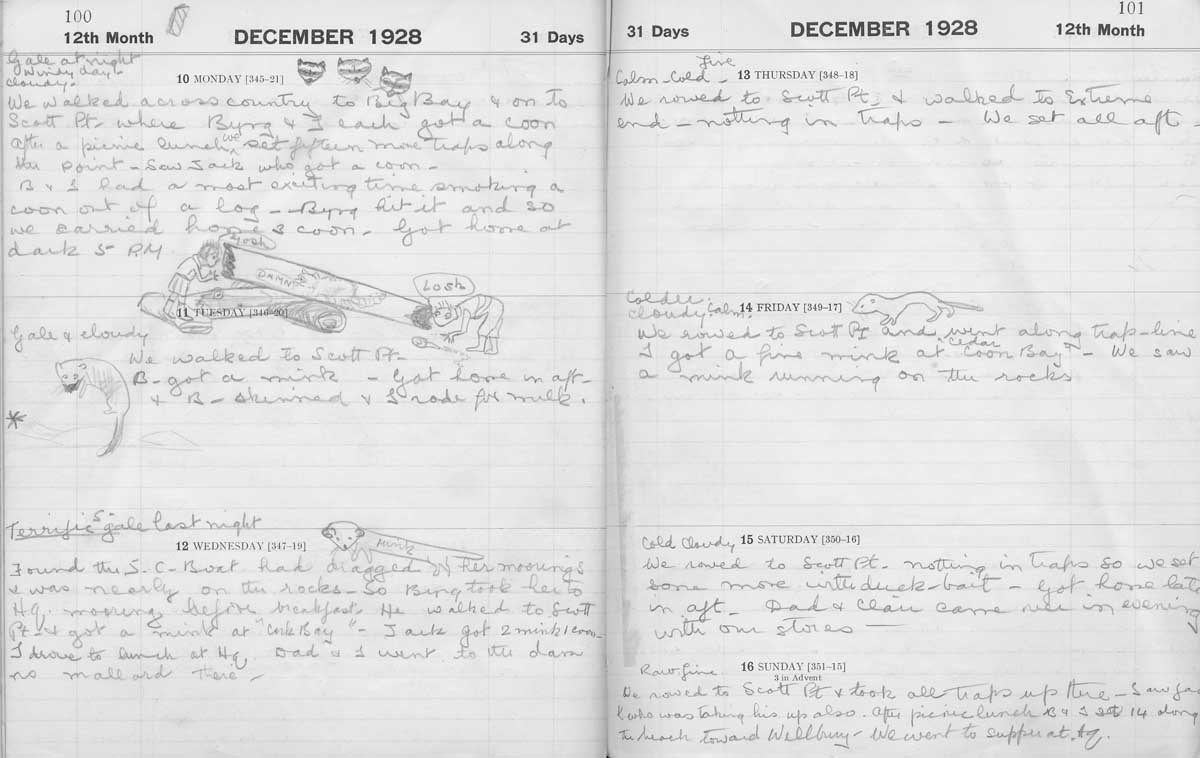 100
12th Month
DECEMBER 1928
31 Days
Gale at night
Windy day
cloudy
10 MONDAY [345-21]
We walked across country to Big Bay & on to
Scott Pt. where Byng & I each got a coon
after a picnic lunch we set fifteen more traps along
the point - Saw Jack who got a coon -
B & I had a most exciting time smoking a
coon out of a log - Byng hit it and so
we carried home 3 coon - Got home at
dark 5 P.M
Losh
DAMN
Losh
11 TUESDAY [346-20]
Gale & cloudy
We walked to Scott Pt -
B - got a mink - Got home in aft -
& B - skinned & I rode for milk.
*
Terrific S. gale last night
12 WEDNESDAY [347-19]
Mink
Found the S. C - Boat had dragged her moorings
& was nearly on the rocks - So Byng took her to
Hq. mooring before breakfast. He walked to Scott
Pt. & got a mink at "Cork Bay" - Jack got 2 mink 1 coon -
I drove to lunch at Hq. Dad & I went to the dam
no mallard there -
101
31 Days
DECEMBER 1928
12th Month
Calm - Cold - Fine
13 THURSDAY [348-18]
We rowed to Scott Pt. & walked to Extreme
end - nothing in traps - We set all aft
Colder
cloudy Calm.
14 FRIDAY [349-17]
We rowed to Scott Pt and went along trap-line
I got a fine mink at "Cedar Coon Bay" - We saw
a mink running on the rocks
Cold Cloudy
15 SATURDAY [350-16]
We rowed to Scott Pt. nothing in traps so we set
some more with duck-bait - Got home late
in aft - Dad & Clair came over in evening
with our stores -
Raw fine
16 SUNDAY [351-15]
3 in Advent
We rowed to Scott Pt & took all traps up there - Saw Ja
k who was taking his up also. After picnic lunch B & I set 14 along
the beach toward Wellbury - We went to supper at Hq.